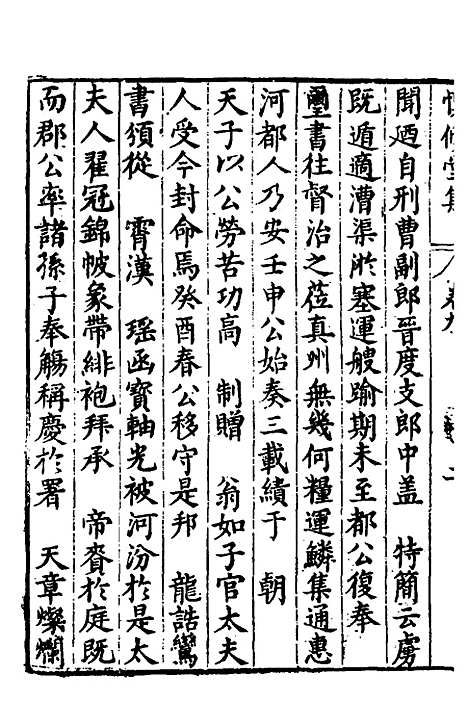 聞廼自刑曹副郎晉度支郎中盖 特簡云虜
既遁適漕渠淤塞運艘踰期未至都公復奉
璽書往督治之莅真州無幾何糧運鱗集通惠
河都人乃安壬申公始奏三載績于 朝
天子以公勞苦功高 制贈 翁如子官太夫
人受今封命焉癸酉春公移守是邦 龍誥鸞
書須從 霄漢 瑶函寶軸光被河汾於是太
夫人翟冠錦帔象帶緋袍拜承 帝賚於庭既
而郡公率諸孫子奉觴稱慶於署 天章燦爛